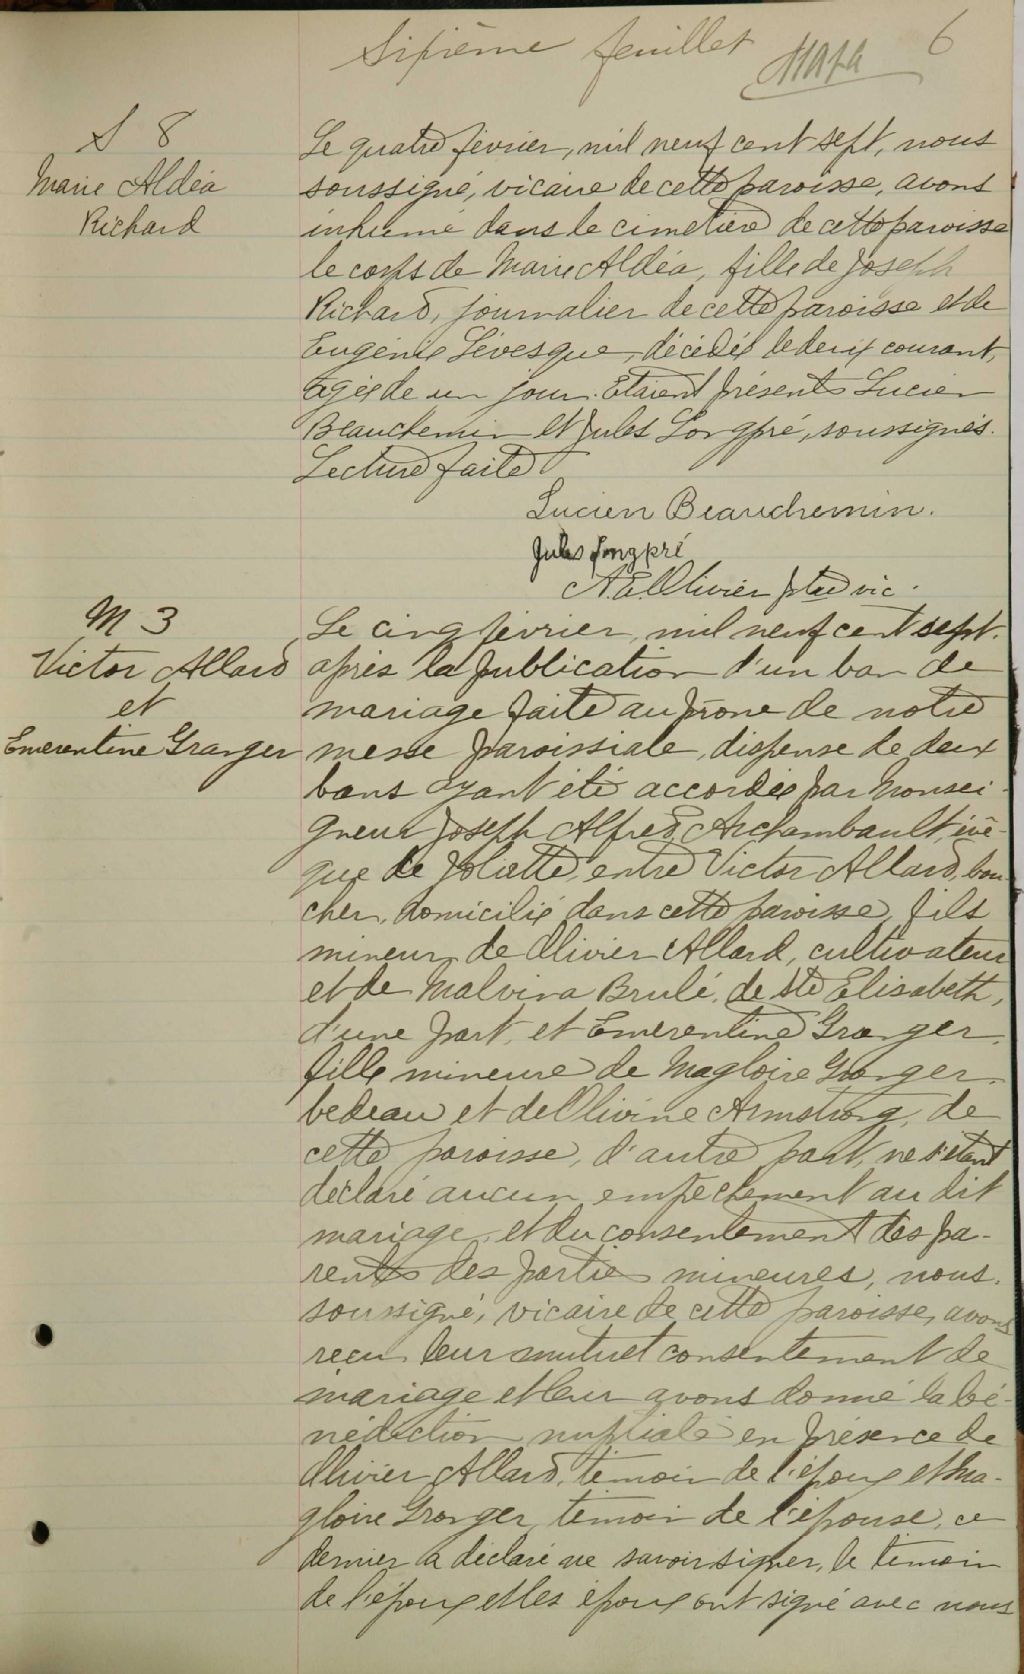 Sixième feuillet 6
S 8
Marie Aldéa
Richard
Le quatre février, mil neuf cent sept, nous
soussigné, vicaire de cette paroisse, avons
inhumé dans le cimetière de cette paroisse
le corps de Marie Aldéa, fille de Joseph
Richard, journalier de cette paroisse et de
Eugénie Lévesque, décédée le deux courant,
agée de un jour. Etaient présents Lucien
Beauchemin et Jules Longpré, soussignés.
Lecture faite
Lucien Beauchemin.
Jules Longpré
A.E. Olivier ptre vic.
M 3
Victor Allard
et
Emerentine Granger
Le cinq février, mil neuf cent sept.
après la publication d'un ban de
mariage faite au prone de notre
messe paroissiale, dispense de deux
bans ayant été accordée par Monsei-
gneur Joseph Alfred Archambault, évê-
que de Joliette, entre Victor Allard, bou-
cher, domicilié dans cette paroisse, fils
mineur de Olivier Allard, cultivateur
et de Malvina Brulé, de Ste Elisabeth,
d'une part, et Emerentine Granger,
fille mineure de Magloire Granger,
bedeau et de Olivine Armstrong, de
cette paroisse, d'autre part, ne s'étant
déclaré aucun empechement au dit
mariage, et du consentement des pa-
rents des parties mineures, nous,
soussigné, vicaire de cette paroisse, avons
recu leur mutuel consentement de
mariage et leur avons donné la bé-
nédiction nuptiale en présence de
Olivier Allard, témoin de l'époux et Ma-
gloire Granger, témoin de l'épouse, ce
dernier a déclaré ne savoir signer, le témoin
de l'époux et les époux ont signé avec nous